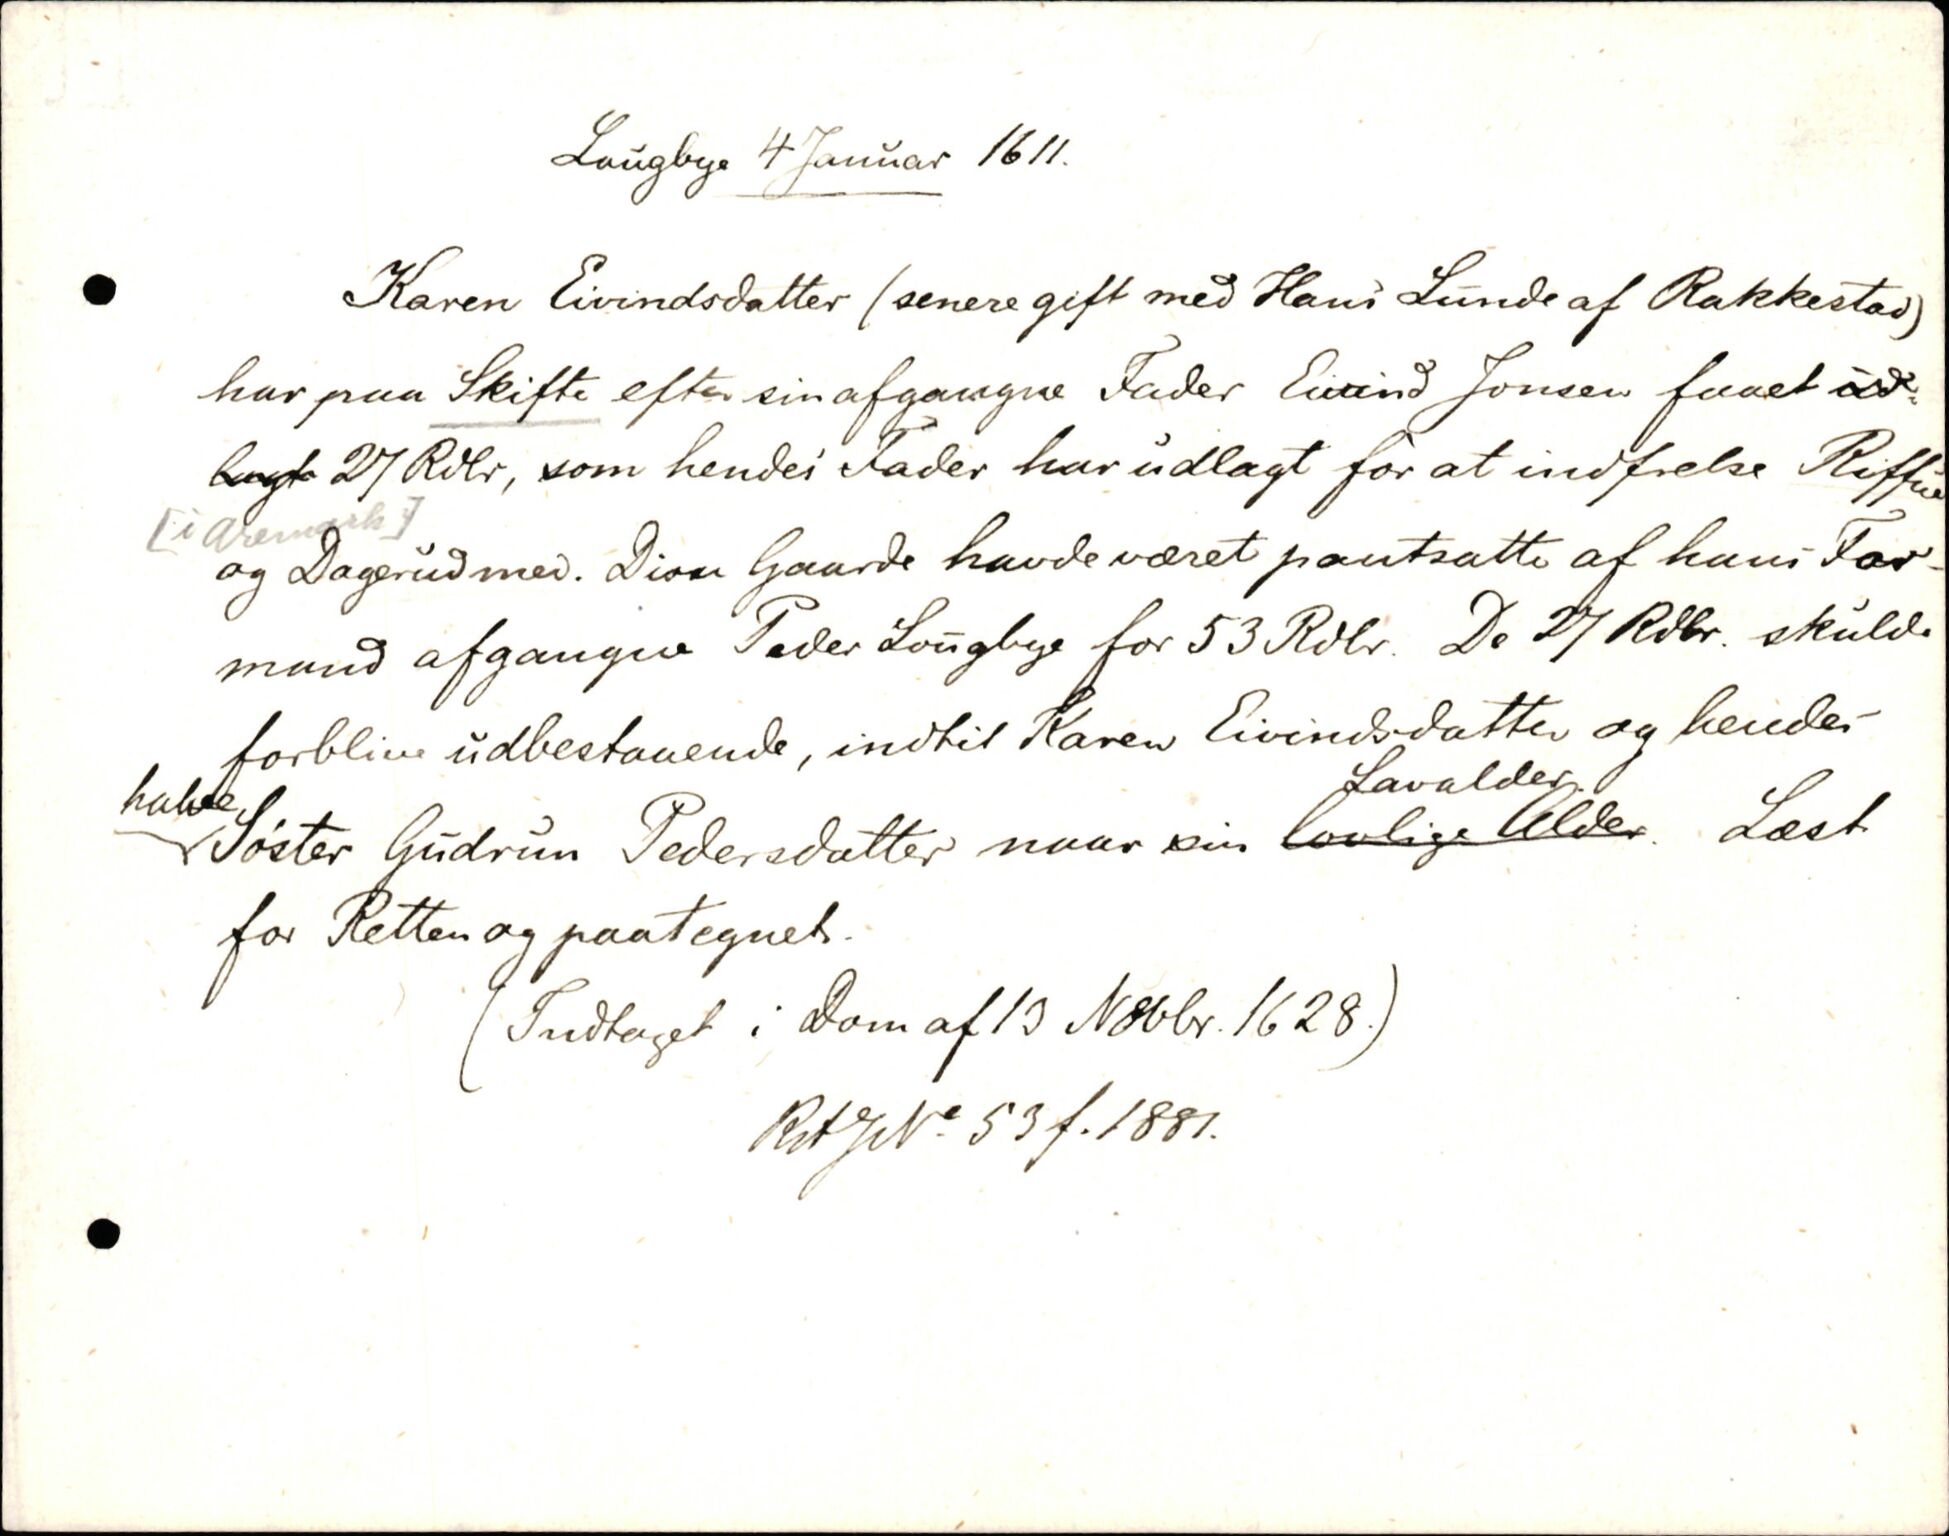 Lougbye 4 Januar 1611.
Karen Eivindsdatter (senere gift med Hans Lunde af Rakkestad)
har paa Skifte efter sin afgangne Fader Eivind Jonsen faaet ud-
lagt 27 Rdlr, som hendes Fader har udlagt for at indfrelse Riffue
[i Aremark]
og Dagerud med. Disse Gaarde havde været pantsatte af hans For-
mand afgangne Peder Lougbye for 53 Rdlr. De 27 Rdlr. skulde
forblive udbestaaende, indtil Karen Eivindsdatter og hendes
halve Søster Gudrun Pedersdatter naar sin lovlige Alder Lavalder. Læst
for Retten og paategnet.
(Indtaget i Dom af 13 Novbr. 1628.)
No 53 f. 1881.